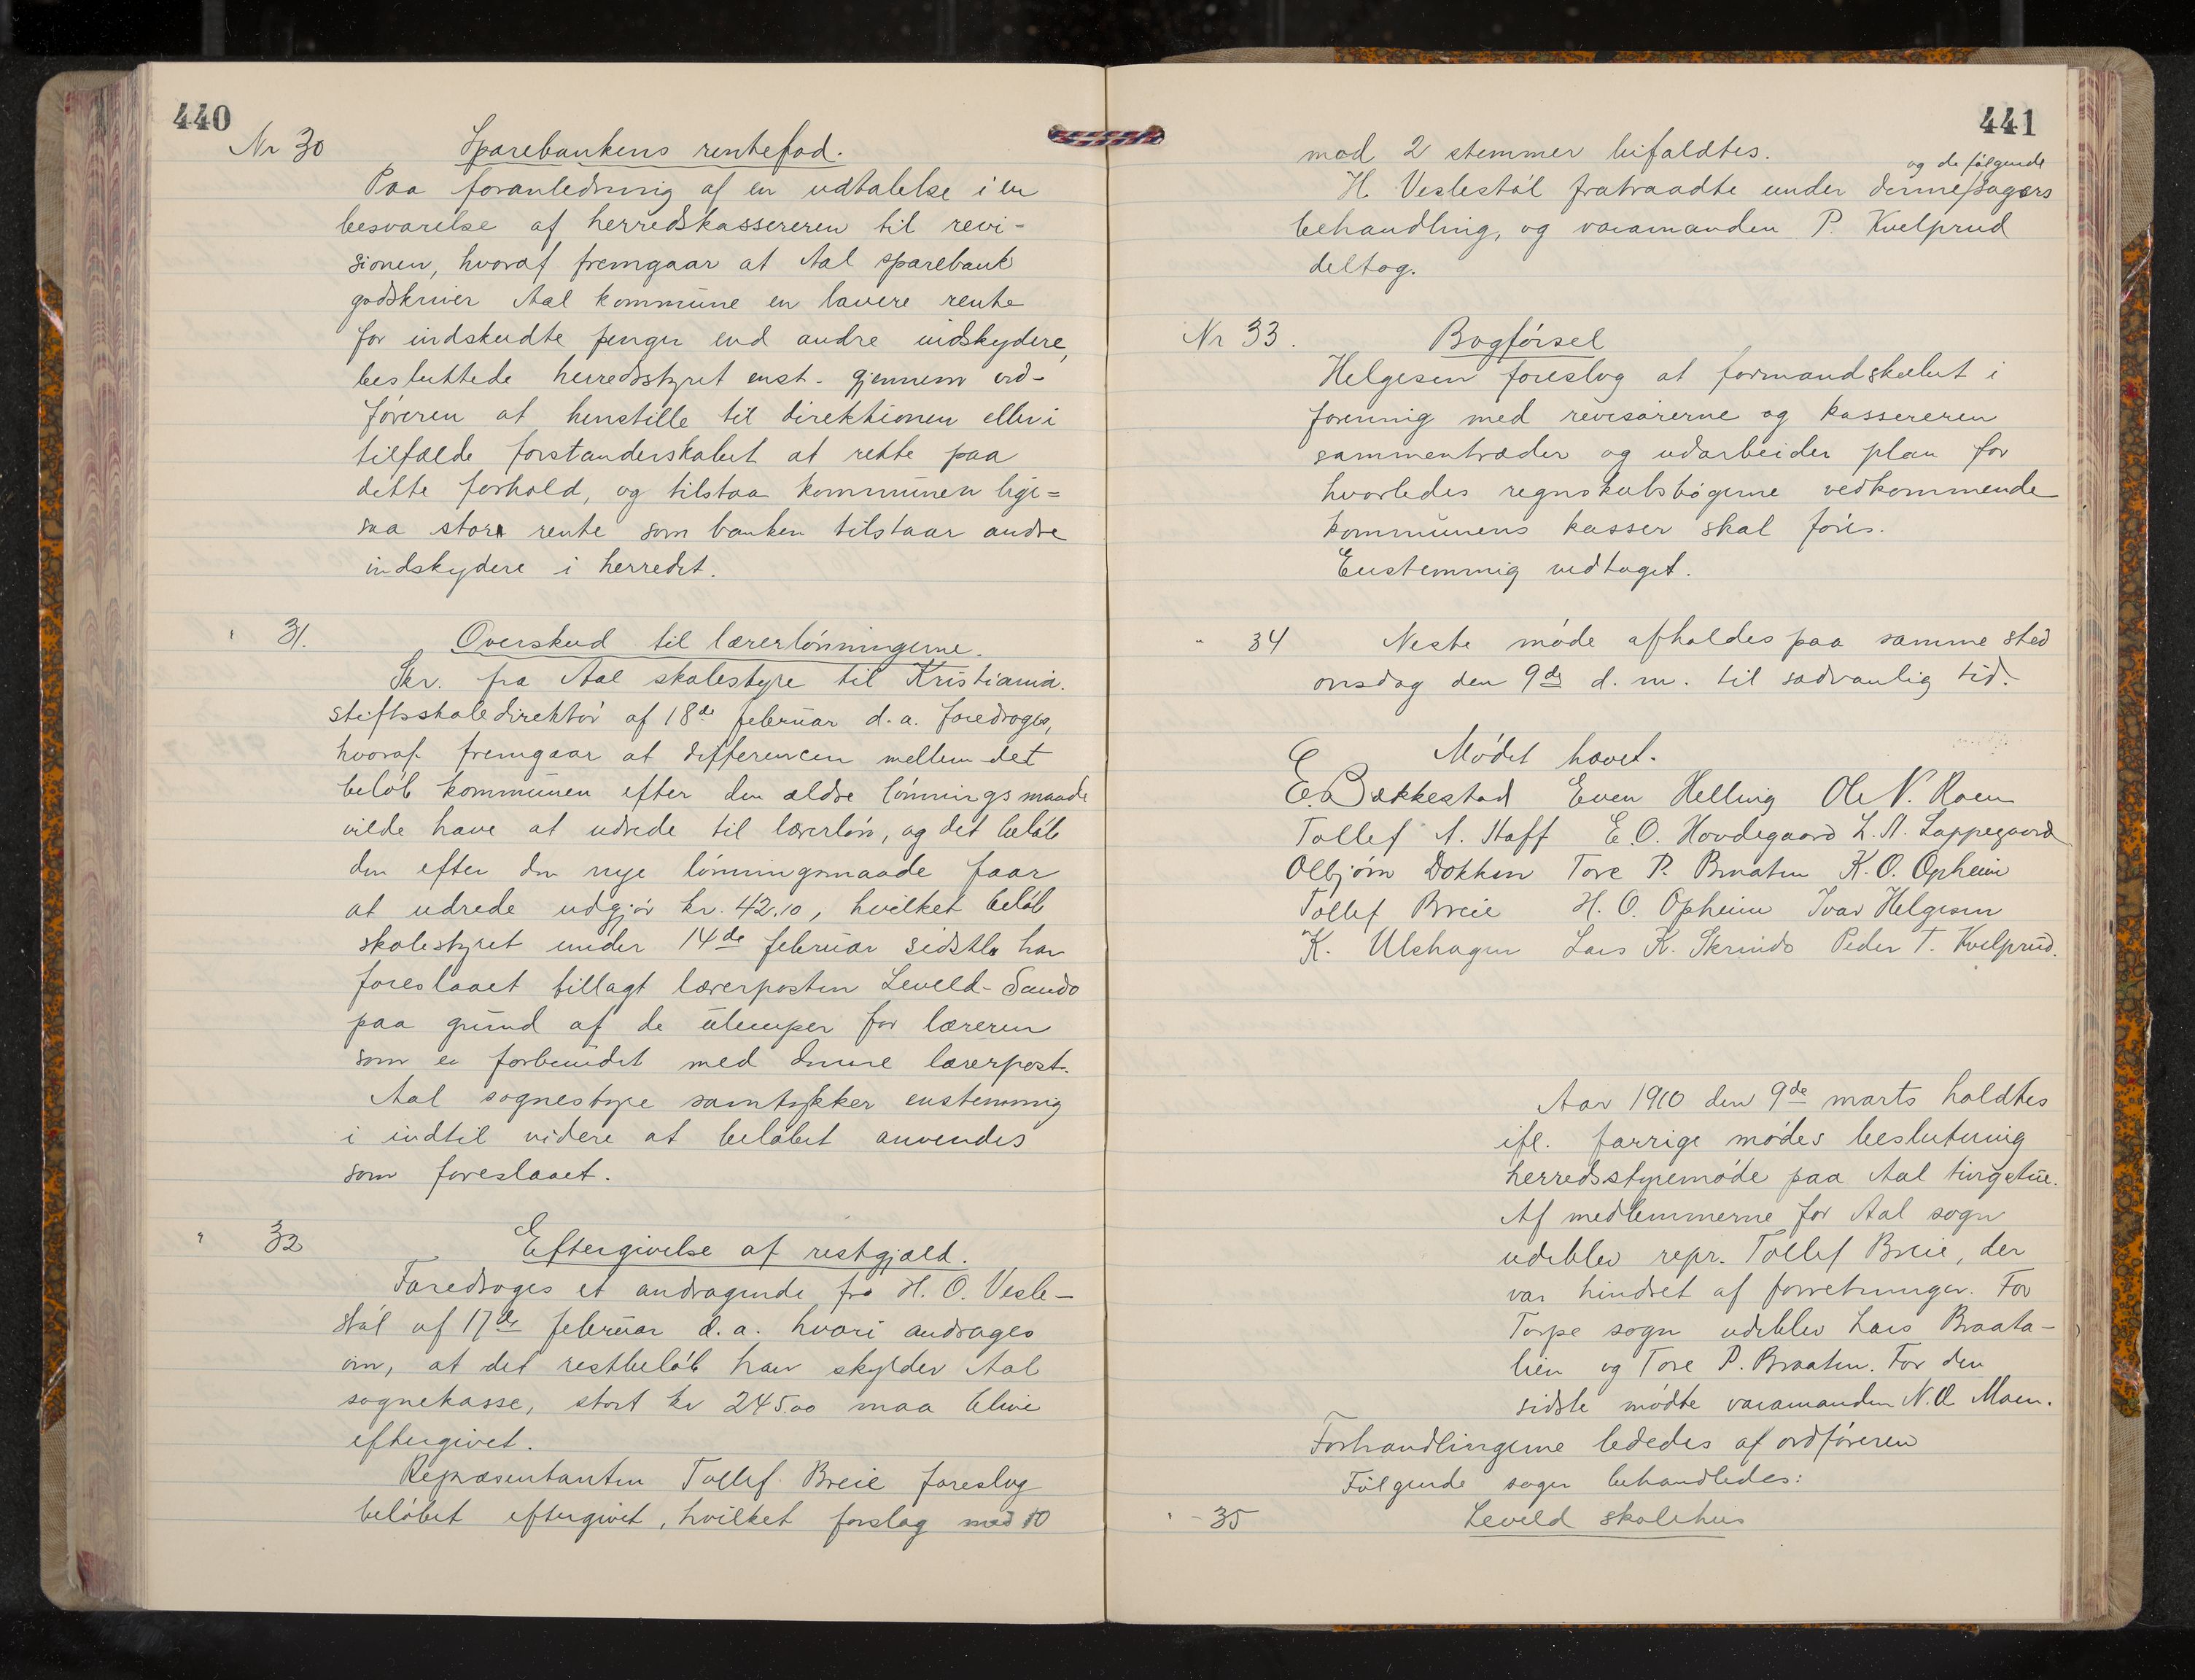 440
Nr 30 Sparebankens rentefod.
Paa foranledning af en udtalelse i en
besvarelse af herredskassereren til revi-
sionen, hvoraf fremgaar at Aal sparebank
godskriver Aal kommune en lavere rente
for indskudte penger end andre indskydere,
besluttede herredsstyret enst. gjennem ord-
føreren at henstille til direktionen eller i
tilfælde forstanderskabet at rette paa
dette forhold, og tilstaa kommunen lige=
saa stor rente som banken tilstaar andre
indskydere i herredet.
" 31. Overskud til lærerlønningerne.
Skr. fra Aal skolestyre til Kristiania
stiftsskoledirektør af 18de februar d.a. foredroges,
hvoraf fremgaar at differencen mellem det
beløb kommunen efter den ældre lønningsmaade
vilde have at udrede til lærerløn, og det beløb
den efter den nye lønningsmaade faar
at udrede udgjør kr. 42,10, hvilket beløb
skolestyret under 14de februar sidstl. har
foreslaaet tillagt lærerposten Leveld-Sando
paa grund af de ulemper for læreren
som er forbundet med denne lærerpost.
Aal sognestyre samtykker enstemmig
i indtil videre at beløbet anvendes
som foreslaaet.
" 32 Eftergivelse af restgjæld.
Foredroges et andragende fra H. O. Vesle-
støl af 17de februar d.a. hvori andrages
om, at det restbeløb han skylder Aal
sognekasse, stort kr 245.00 maa blive
eftergivet.
Repræsentanten Tollef Breie foreslog
beløbet eftergivet, hvilket forslag med 10
441
mod 2 stemmer bifaldtes.
og de følgende
H. Veslestøl fratraadte under denne sagers
behandling, og varamanden P. Kvelprud
deltog.
Nr 33. Bogførsel
Helgesen foreslog at formandskabet i
forening med revisorerne og kassereren
sammentræder og udarbeider plan for
hvorledes regnskabsbøgerne vedkommende
kommunens kasser skal føres.
Enstemmig vedtaget.
" 34 Neste møde afholdes paa samme sted
onsdag den 9de d.m. til sædvanlig tid.
Mødet hævet.
E. Bækkestad Even Helling Ole N. Roen
Tollef A. Haff E.O. Hovdegaard L. A. Lappegaard
Olbjørn Dokken Tore P. Braaten K.O. Opheim
Tollef Breie H. O. Opheim Ivar Helgesen
K. Ulshagen Lars K. Skrindo Peder T. Kvelprud.
Aar 1910 den 9de marts holdtes
ifl. forrige mødes beslutning
herredsstyremøde paa Aal tingstue.
Af medlemmerne for Aal sogn
udeblev repr. Tollef Breie, der
var hindret af forretninger. For
Torpe sogn udeblev Lars Braata-
lien og Tore P. Braaten. For den
sidste mødte varamanden N.O. Moen.
Forhandlingerne lededes af ordføreren
Følgende sager behandledes:
" - 35 Leveld skolehus